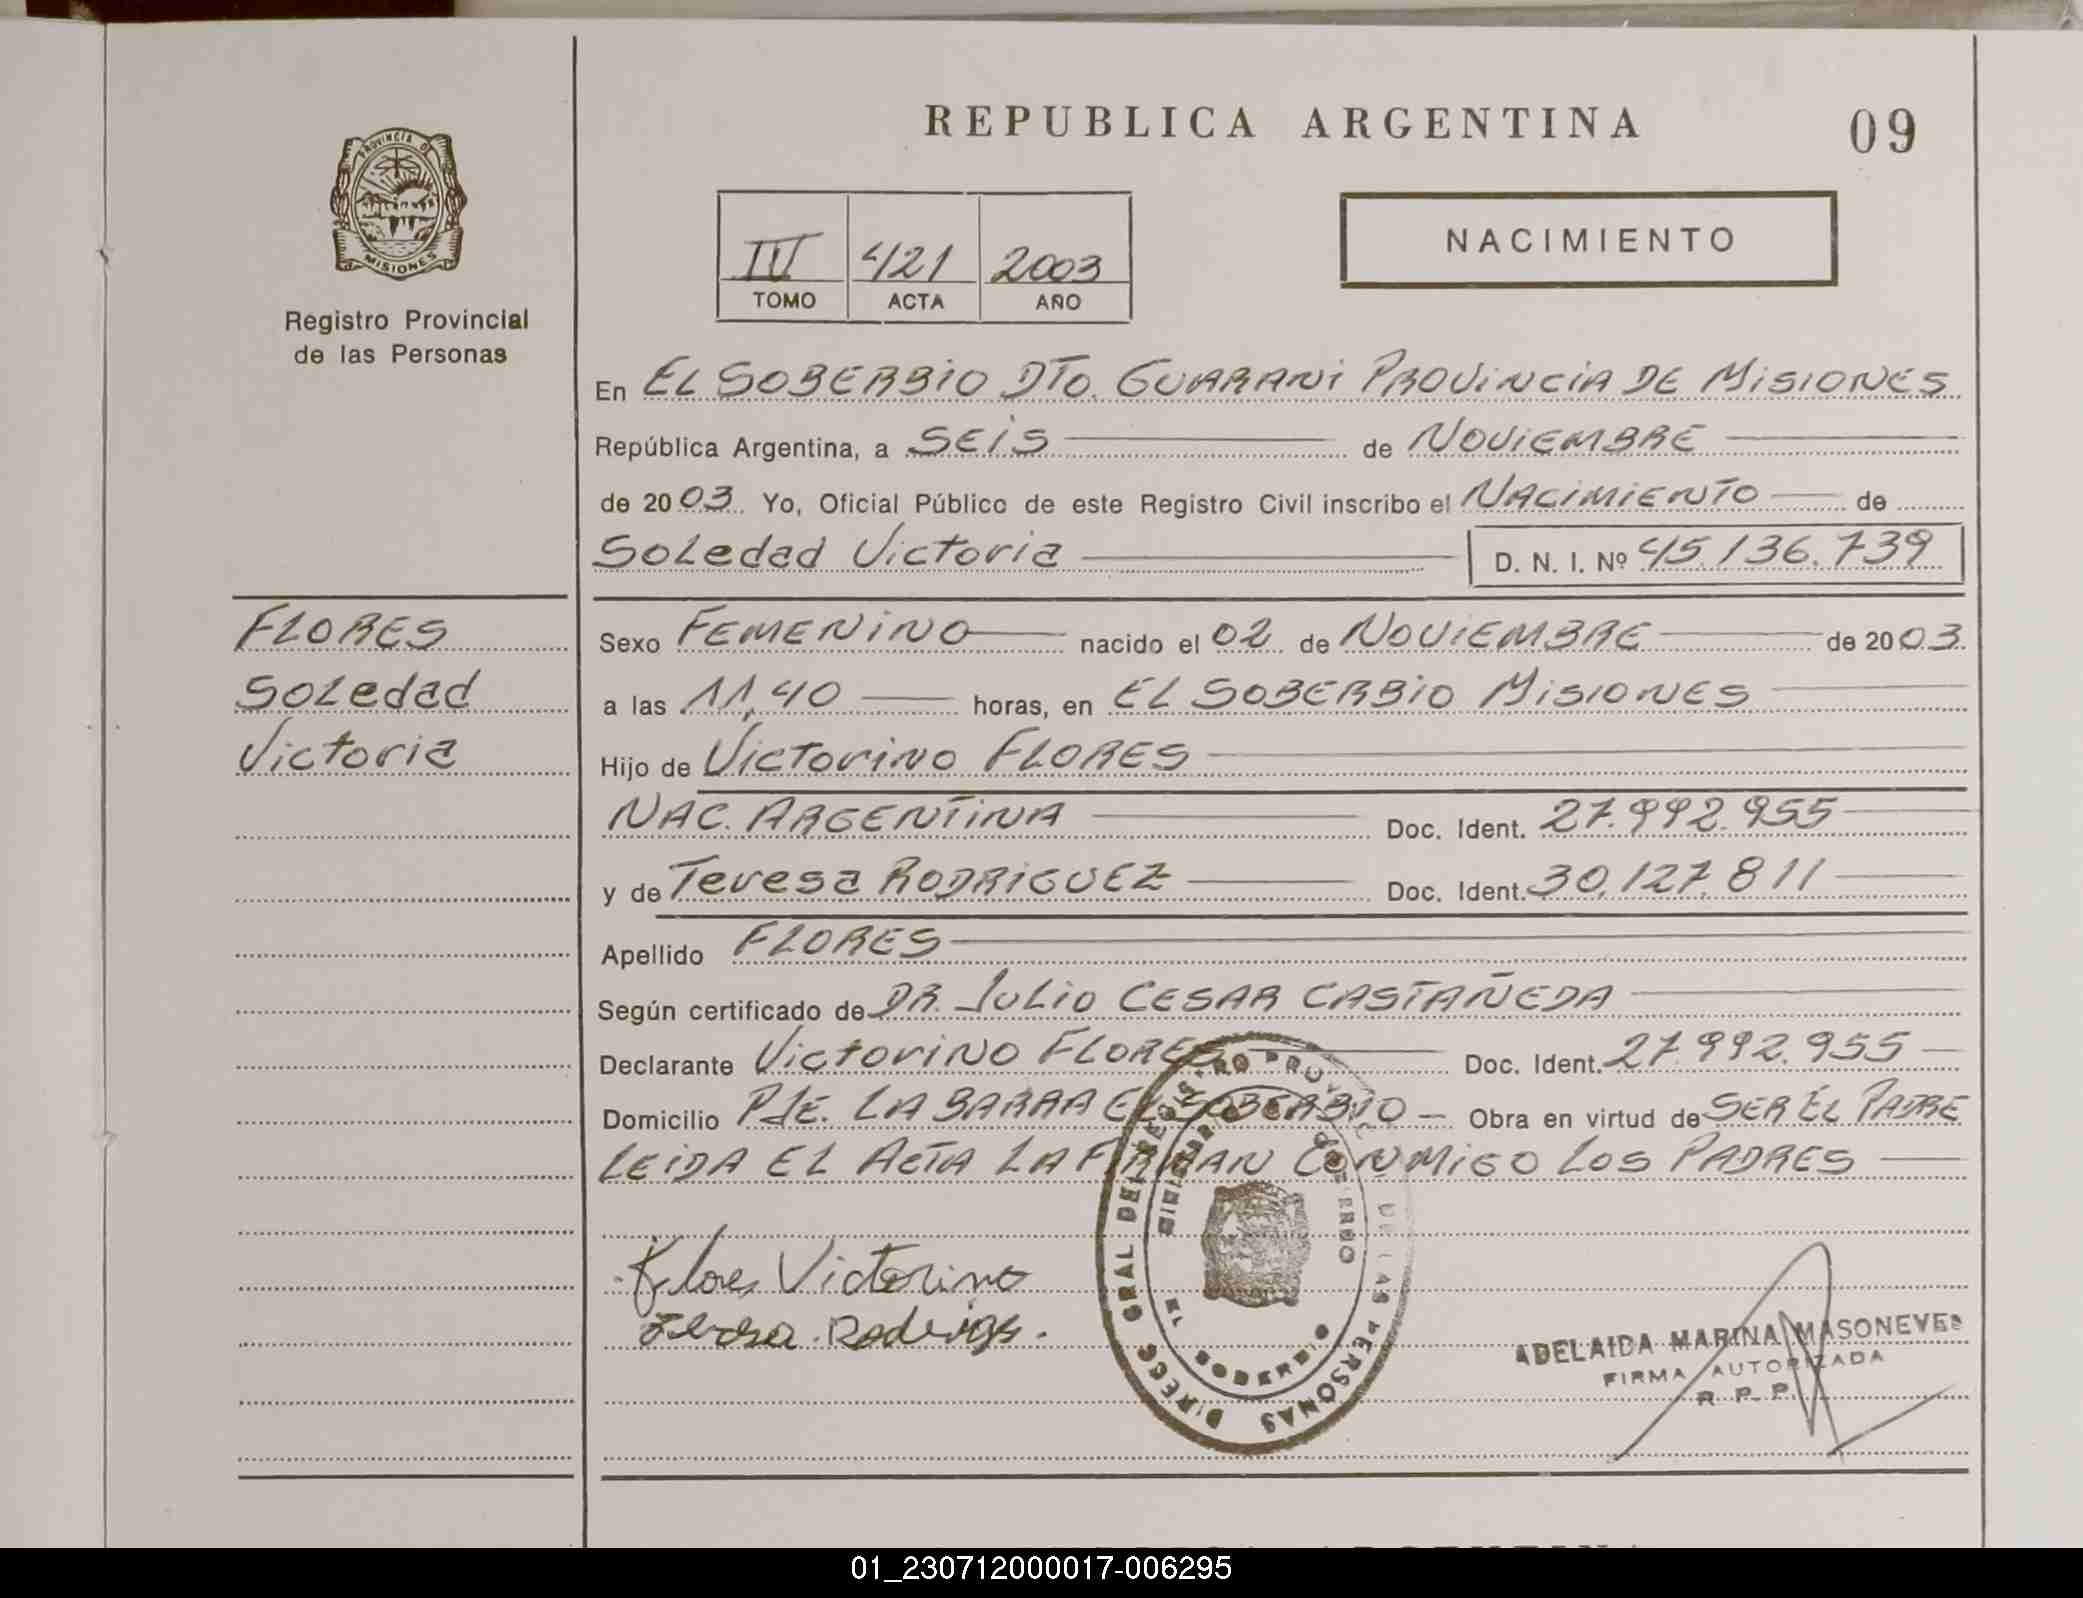 REPUBLICA ARGENTINA
09
PROVINCIA DE
MISIONES
Registro Provincial
de las Personas
IV 421 2003
TOMO ACTA AÑO
NACIMIENTO
En EL SOBERBIO DTO. GUARANI PROVINCIA DE MISIONES
República Argentina, a SEIS de NOVIEMBRE
de 2003. Yo, Oficial Público de este Registro Civil inscribo el NACIMIENTO de
Soledad Victoria D. N. I. Nº 45.136.739
FLORES
Soledad
Victoria
Sexo FEMENINO nacido el 02 de NOVIEMBRE de 2003.
a las 11,40 horas, en EL SOBERBIO MISIONES
Hijo de Victorino FLORES
NAC. ARGENTINA Doc. Ident. 27.992.955
y de Teresa RODRIGUEZ Doc. Ident. 30.127.811
Apellido FLORES
Según certificado de DR. JULIO CESAR CASTAÑEDA
Declarante Victorino FLORES Doc. Ident. 27.992.955
Domicilio PJE. LA BARRA EL SOBERBIO Obra en virtud de SER EL PADRE
LEIDA EL ACTA LA FIRMAN CONMIGO LOS PADRES
Flores Victorino
DIRECC GRAL DEL REGISTRO PROVINCIAL DE LAS PERSONAS
MINISTERIO DE GOBIERNO
EL SOBERBIO
ADELAIDA MARINA MASONEVES
FIRMA AUTORIZADA
R. P. P.
01_230712000017-006295